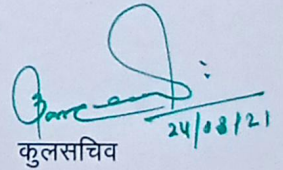 24/08/21
कुलसचिव